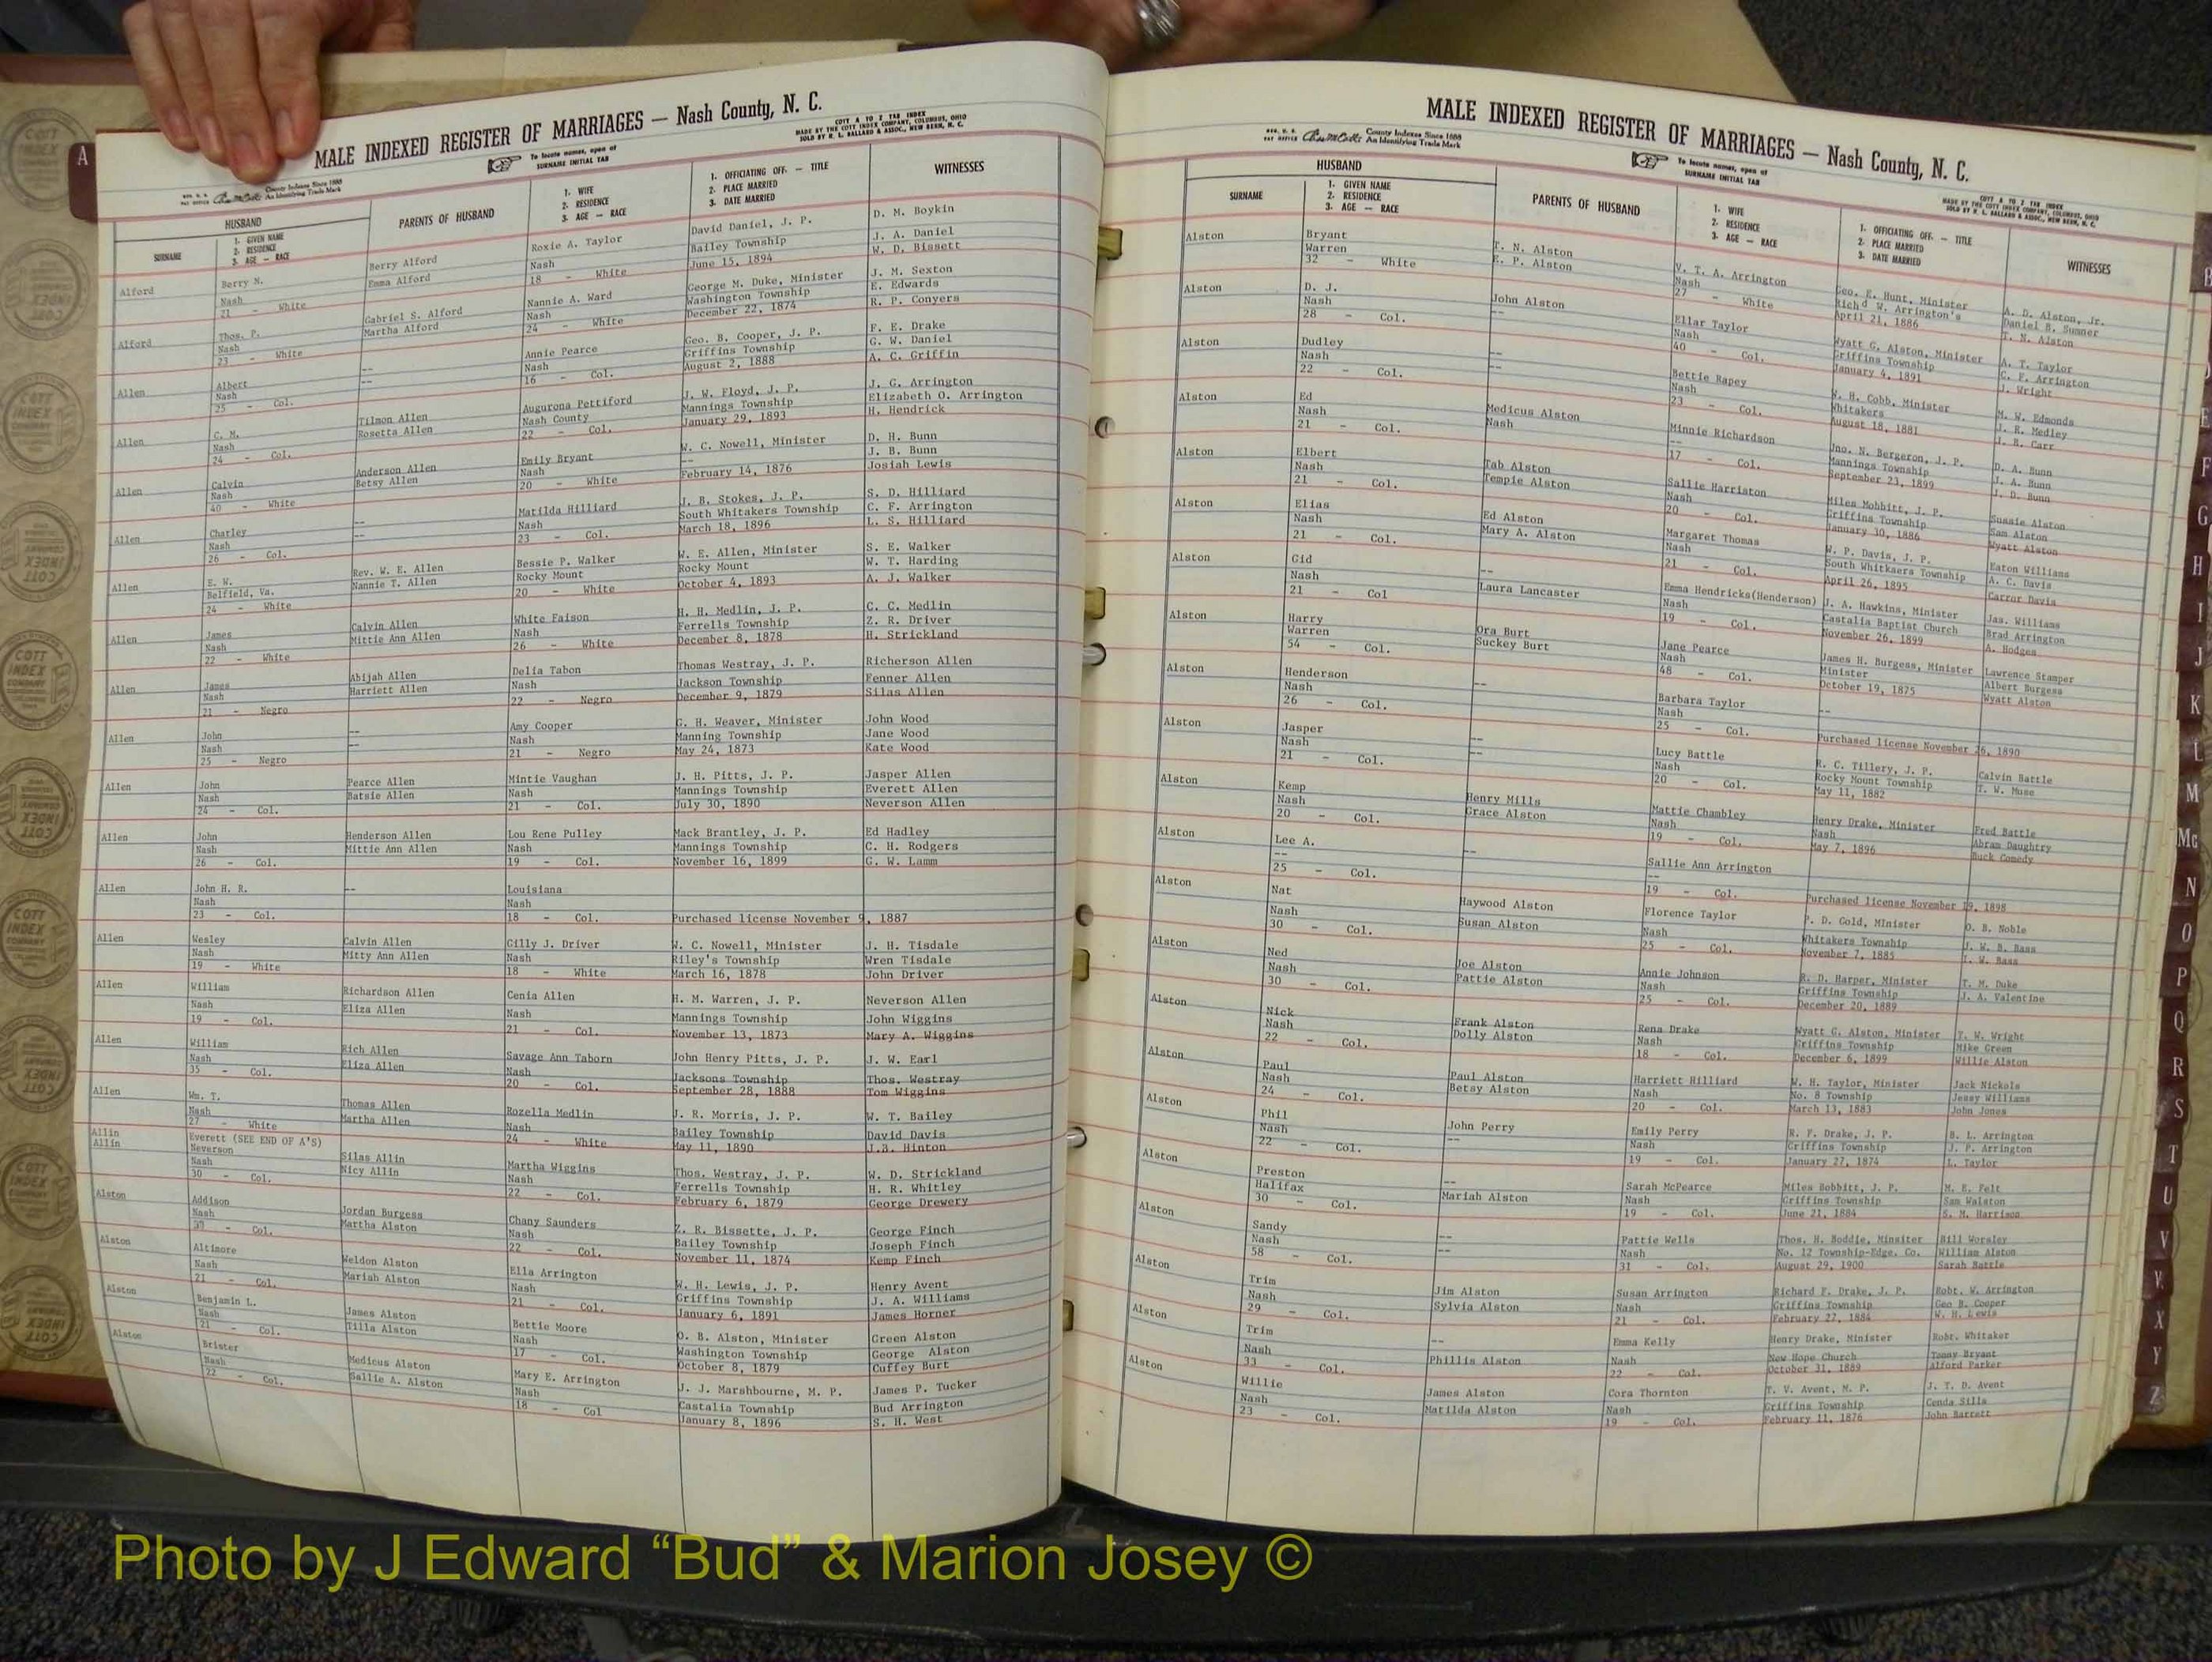 MALE INDEXED REGISTER OF MARRIAGES — Nash County, N. C.
COTT A TO Z TAB INDEX
MADE BY THE COTT INDEX COMPANY, COLUMBUS, OHIO
SOLD BY R. L. BALLARD & ASSOC., NEW BERN, N. C.
To locate names, open at
SURNAME INITIAL TAB
County Indexes Since 1888
An Identifying Trade Mark
HUSBAND
SURNAME
1. GIVEN NAME
2. RESIDENCE
3. AGE — RACE
PARENTS OF HUSBAND
1. WIFE
2. RESIDENCE
3. AGE — RACE
1. OFFICIATING OFF. — TITLE
2. PLACE MARRIED
3. DATE MARRIED
WITNESSES
Alford Berry N. Berry Alford Roxie A. Taylor David Daniel, J. P. D. M. Boykin
Nash Emma Alford Nash Bailey Township J. A. Daniel
21 - White 18 - White June 15, 1894 W. D. Bissett
Alford Thos. P. Gabriel S. Alford Nannie A. Ward George M. Duke, Minister J. M. Sexton
Nash Martha Alford Nash Washington Township E. Edwards
23 - White 24 - White December 22, 1874 R. P. Conyers
Allen Albert -- Annie Pearce Geo. B. Cooper, J. P. F. E. Drake
Nash -- Nash Griffins Township G. W. Daniel
25 - Col. 16 - Col. August 2, 1888 A. C. Griffin
Allen C. M. Tilmon Allen Augurona Pettiford J. W. Floyd, J. P. J. G. Arrington
Nash Rosetta Allen Nash County Mannings Township Elizabeth O. Arrington
24 - Col. 22 - Col. January 29, 1893 H. Hendrick
Allen Calvin Anderson Allen Emily Bryant W. C. Nowell, Minister D. H. Bunn
Nash Betsy Allen Nash -- J. B. Bunn
40 - White 20 - White February 14, 1876 Josiah Lewis
Allen Charley -- Matilda Hilliard J. B. Stokes, J. P. S. D. Hilliard
Nash -- Nash South Whitakers Township C. F. Arrington
26 - Col. 23 - Col. March 18, 1896 L. S. Hilliard
Allen E. W. Rev. W. E. Allen Bessie P. Walker W. E. Allen, Minister S. E. Walker
Belfield, Va. Nannie T. Allen Rocky Mount Rocky Mount W. T. Harding
24 - White 20 - White October 4, 1893 A. J. Walker
Allen James Calvin Allen White Faison H. H. Medlin, J. P. C. C. Medlin
Nash Mittie Ann Allen Nash Ferrells Township Z. R. Driver
22 - White 26 - White December 8, 1878 H. Strickland
Allen James Abijah Allen Delia Tabon Thomas Westray, J. P. Richerson Allen
Nash Harriett Allen Nash Jackson Township Fenner Allen
21 - Negro 22 - Negro December 9, 1879 Silas Allen
Allen John -- Amy Cooper G. H. Weaver, Minister John Wood
Nash -- Nash Manning Township Jane Wood
25 - Negro 21 - Negro May 24, 1873 Kate Wood
Allen John Pearce Allen Mintie Vaughan J. H. Pitts, J. P. Jasper Allen
Nash Batsie Allen Nash Mannings Township Everett Allen
24 - Col. 21 - Col. July 30, 1890 Neverson Allen
Allen John Henderson Allen Lou Rene Pulley Mack Brantley, J. P. Ed Hadley
Nash Mittie Ann Allen Nash Mannings Township C. H. Rodgers
26 - Col. 19 - Col. November 16, 1899 G. W. Lamm
Allen John H. R. -- Louisiana
Nash Nash
23 - Col. 18 - Col. Purchased license November 9, 1887
Allen Wesley Calvin Allen Gilly J. Driver W. C. Nowell, Minister J. H. Tisdale
Nash Mitty Ann Allen Nash Riley's Township Wren Tisdale
19 - White 18 - White March 16, 1878 John Driver
Allen William Richardson Allen Cenia Allen H. M. Warren, J. P. Neverson Allen
Nash Eliza Allen Nash Mannings Township John Wiggins
19 - Col. 21 - Col. November 13, 1873 Mary A. Wiggins
Allen William Rich Allen Savage Ann Taborn John Henry Pitts, J. P. J. W. Earl
Nash Eliza Allen Nash Jacksons Township Thos. Westray
35 - Col. 20 - Col. September 28, 1888 Tom Wiggins
Allen Wm. T. Thomas Allen Rozella Medlin J. R. Morris, J. P. W. T. Bailey
Nash Martha Allen Nash Bailey Township David Davis
27 - White 24 - White May 11, 1890 J.B. Hinton
Allin Everett (SEE END OF A'S)
Allin Neverson Silas Allin Martha Wiggins Thos. Westray, J. P. W. D. Strickland
Nash Nicy Allin Nash Ferrells Township H. R. Whitley
30 - Col. 22 - Col. February 6, 1879 George Drewery
Alston Addison Jordan Burgess Chany Saunders Z. R. Bissette, J. P. George Finch
Nash Martha Alston Nash Bailey Township Joseph Finch
- Col. 22 - Col. November 11, 1874 Kemp Finch
Alston Altimore Weldon Alston Ella Arrington W. H. Lewis, J. P. Henry Avent
Nash Mariah Alston Nash Griffins Township J. A. Williams
21 - Col. 21 - Col. January 6, 1891 James Horner
Alston Benjamin L. James Alston Bettie Moore O. B. Alston, Minister Green Alston
Nash Tilla Alston Nash Washington Township George Alston
21 - Col. 17 - Col. October 8, 1879 Cuffey Burt
Alston Brister Medicus Alston Mary E. Arrington J. J. Marshbourne, M. P. James P. Tucker
Nash Sallie A. Alston Nash Castalia Township Bud Arrington
22 - Col. 18 - Col January 8, 1896 S. H. West
MALE INDEXED REGISTER OF MARRIAGES — Nash County, N. C.
COTT A TO Z TAB INDEX
MADE BY THE COTT INDEX COMPANY, COLUMBUS, OHIO
SOLD BY R. L. BALLARD & ASSOC., NEW BERN, N. C.
To locate names, open at
SURNAME INITIAL TAB
County Indexes Since 1888
An Identifying Trade Mark
HUSBAND
SURNAME
1. GIVEN NAME
2. RESIDENCE
3. AGE — RACE
PARENTS OF HUSBAND
1. WIFE
2. RESIDENCE
3. AGE — RACE
1. OFFICIATING OFF. — TITLE
2. PLACE MARRIED
3. DATE MARRIED
WITNESSES
Alston Bryant T. N. Alston V. T. A. Arrington Geo. E. Hunt, Minister A. D. Alston, Jr.
Warren E. P. Alston Nash Richd W. Arrington's Daniel B. Sumner
32 - White 27 - White April 21, 1886 T. N. Alston
Alston D. J. John Alston Ellar Taylor Wyatt G. Alston, Minister A. T. Taylor
Nash -- Nash Griffins Township C. F. Arrington
28 - Col. 40 - Col. January 4, 1891 J. Wright
Alston Dudley -- Bettie Rapey W. H. Cobb, Minister M. W. Edmonds
Nash -- Nash Whitakers J. R. Medley
22 - Col. 23 - Col. August 18, 1881 J. R. Carr
Alston Ed Medicus Alston Minnie Richardson Jno. N. Bergeron, J. P. D. A. Bunn
Nash Nash -- Mannings Township J. A. Bunn
21 - Col. 17 - Col. September 23, 1899 J. D. Bunn
Alston Elbert Tab Alston Sallie Harriston Miles Bobbitt, J. P. Sussie Alston
Nash Tempie Alston Nash Griffins Township Sam Alston
21 - Col. 20 - Col. January 30, 1886 Wyatt Alston
Alston Elias Ed Alston Margaret Thomas W. P. Davis, J. P. Eaton Williams
Nash Mary A. Alston Nash South Whitkaers Township A. C. Davis
21 - Col. 21 - Col. April 26, 1895 Carror Davis
Alston Gid -- Emma Hendricks(Henderson) J. A. Hawkins, Minister Jas. Williams
Nash Laura Lancaster Nash Castalia Baptist Church Brad Arrington
21 - Col 19 - Col. November 26, 1899 A. Hodges
Alston Harry Ora Burt Jane Pearce James H. Burgess, Minister Lawrence Stamper
Warren Suckey Burt Nash Minister Albert Burgess
54 - Col. 48 - Col. October 19, 1875 Wyatt Alston
Alston Henderson -- Barbara Taylor --
Nash Nash
26 - Col. 25 - Col. Purchased license November 26, 1890
Alston Jasper -- Lucy Battle R. C. Tillery, J. P. Calvin Battle
Nash -- Nash Rocky Mount Township T. W. Muse
21 - Col. 20 - Col. May 11, 1882
Alston Kemp Henry Mills Mattie Chambley Henry Drake, Minister Fred Battle
Nash Grace Alston Nash Nash Abram Daughtry
20 - Col. 19 - Col. May 7, 1896 Buck Comedy
Alston Lee A. -- Sallie Ann Arrington
-- --
25 - Col. 19 - Col. Purchased license November 19, 1898
Alston Nat Haywood Alston Florence Taylor P. D. Gold, MInister O. B. Noble
Nash Susan Alston Nash Whitakers Township J. W. B. Bass
30 - Col. 25 - Col. November 7, 1885 T. W. Bass
Alston Ned Joe Alston Annie Johnson R. D. Harper, Minister T. M. Duke
Nash Pattie Alston Nash Griffins Township J. A. Valentine
30 - Col. 25 - Col. December 20, 1889
Alston Nick Frank Alston Rena Drake Wyatt G. Alston, Minister T. W. Wright
Nash Dolly Alston Nash Griffins Township Mike Green
22 - Col. 18 - Col. December 6, 1899 Willie Alston
Alston Paul Paul Alston Harriett Hilliard W. H. Taylor, Minister Jack Nickols
Nash Betsy Alston Nash No. 8 Township Jessy Williams
24 - Col. 20 - Col. March 13, 1883 John Jones
Alston Phil John Perry Emily Perry R. F. Drake, J. P. B. L. Arrington
Nash -- Nash Griffins Township J. P. Arrington
22 - Col. 19 - Col. January 27, 1874 L. Taylor
Alston Preston -- Sarah McPearce Miles Bobbitt, J. P. M. E. Felt
Halifax Mariah Alston Nash Griffins Township Sam Walston
30 - Col. 19 - Col. June 21, 1884 S. M. Harrison
Alston Sandy -- Pattie Wells Thos. H. Boddie, Minsiter Bill Worsley
Nash -- Nash No. 12 Township-Edge. Co. William Alston
58 - Col. 31 - Col. August 29, 1900 Sarah Battle
Alston Trim Jim Alston Susan Arrington Richard E. Drake, J. P. Robt. W. Arrington
Nash Sylvia Alston Nash Griffins Township Geo B. Cooper
29 - Col. 21 - Col. February 27, 1884 W. H. Lewis
Alston Trim -- Emma Kelly Henry Drake, Minister Robt. Whitaker
Nash Phillis Alston Nash New Hope Church Toney Bryant
33 - Col. 22 - Col. October 31, 1889 Alford Parker
Alston Willie James Alston Cora Thornton T. V. Avent, M. P. J. T. D. Avent
Nash Matilda Alston Nash Griffins Township Cenda Sills
23 - Col. 19 - Col. February 11, 1876 John Barrett
A
B
E
F
G
H
I
J
K
L
M
Mc
N
O
P
Q
R
S
T
U
V
X
Y
Z
Photo by J Edward “Bud” & Marion Josey ©